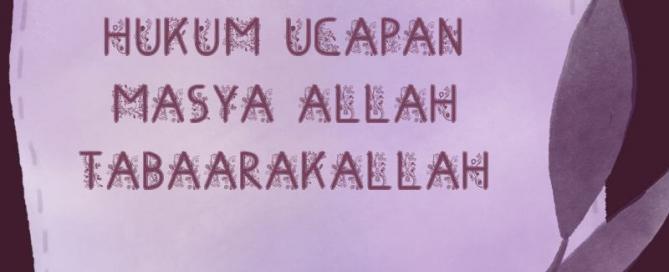 HUKUM UCAPAN
MASYA ALLAH
TABAARAKALLAH